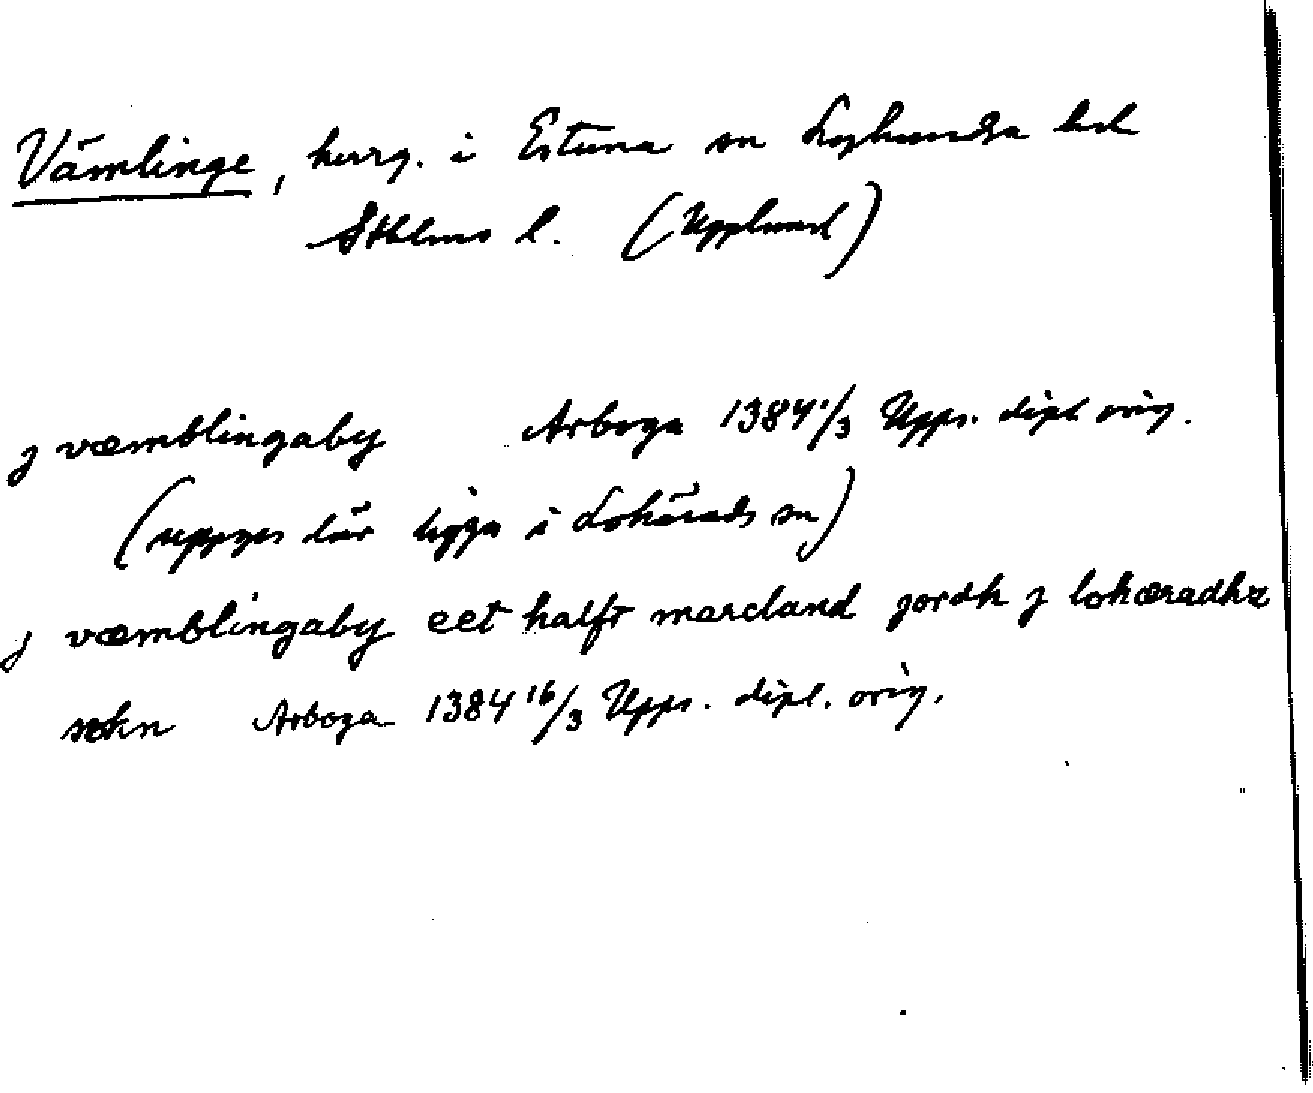 Vämlinge, herrg. i Estuna sn Lyhundra hd
Sthlms l. (Uppland)
j væmblingaby Arboga 1384 1/3 Upps. dipl. orig.
(uppges där ligga i Lohärads sn)
j væmblingaby eet halft marcland jordh j lohæradhz
sokn Arboga 1384 16/3 Upps. dipl. orig.